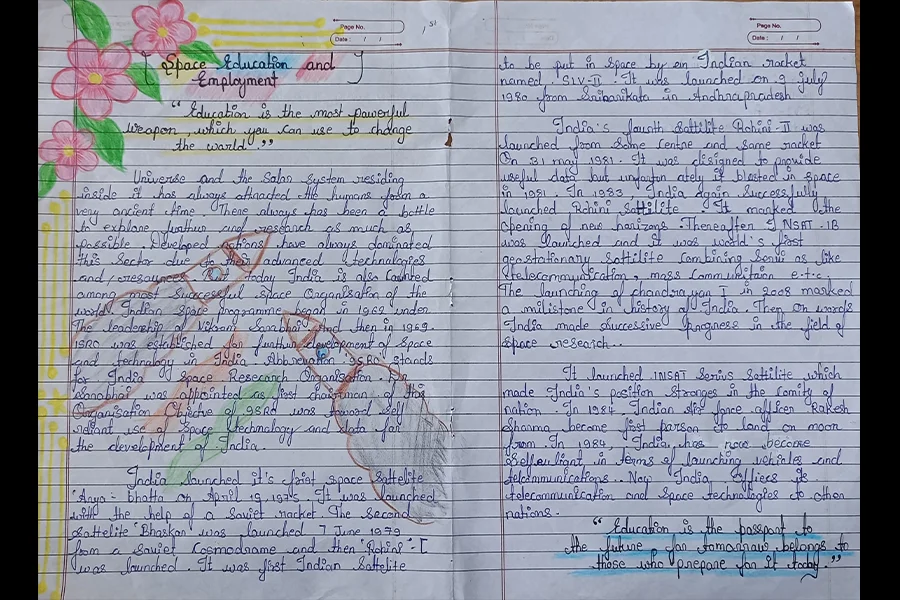 Page No.
Date: / /
51
[ Space Education and
Employment ]
"Education is the most powerful
weapon, which you can use to change
the world."
Universe and the Solar System residing
inside it has always attracted the humans from a
very ancient time. There always has been a battle
to explore further and research as much as
possible. Developed nations have always dominated
this Sector due to their advanced technologies
and resources. But today India is also counted
among most successful space Organisation of the
world. Indian Space programme began in 1962 under
The leadership of Vikram Sarabhai and then in 1969.
ISRO was established for further development of Space
and technology in India. Abbreviation ISRO stands
for India Space Research Organisation.
Sarabhai was appointed as first chairman of this
Organisation Objective of ISRO was toward self
reliant use of Space technology and data for
the development of India.
India launched it's frist space Sattelite
'Arya-bhatta on April 19, 1975. It was launched
with the help of a Soviet racket. The Second
Sattelite 'Bhaskar' was launched 7 June 1979
from a Soviet Cosmodrame and then 'Rohini'-I
was launched. It was first Indian Sattelite
Page No.
Date: / /
to be put in Space by an Indian racket
named SLV-II. It was launched on 9 july
1980 from Sriharikota in Andhrapradesh
India's fourth Sattilite Rohini-II was
launched from Some centre and some racket
On 31 may 1981. It was disigned to provide
useful data but unforton ately it blasted in Space
in 1981. In 1983 India again Successfully
launched Rohini Sattilite. It marked the
opening of new harizons. Thereafter INSAT-1B
was launched and it was world's first
geostationary Sattilite Combining Serve as like
telecommunication, mass Communitaion e.t.c.
The launching of chandrayan I in 2008 marked
a milistone in history of India. Then On words
India made Successive progress in the field of
Space research..
It launched INSAT Serius Sattilite which
made India's position Stronges in the comity of
nation. In 1984, Indian air force officer Rakesh
Sharma become first parson to land on moon
from. In 1984, India has now become
Self-eligant in terms of launching vehicles and
telecommunications. Now India Offices its
telecommunication and Space technologies to other
nations.
"Education is the passport to
the future, for tomorrows belongs to
those who prepare for it today."